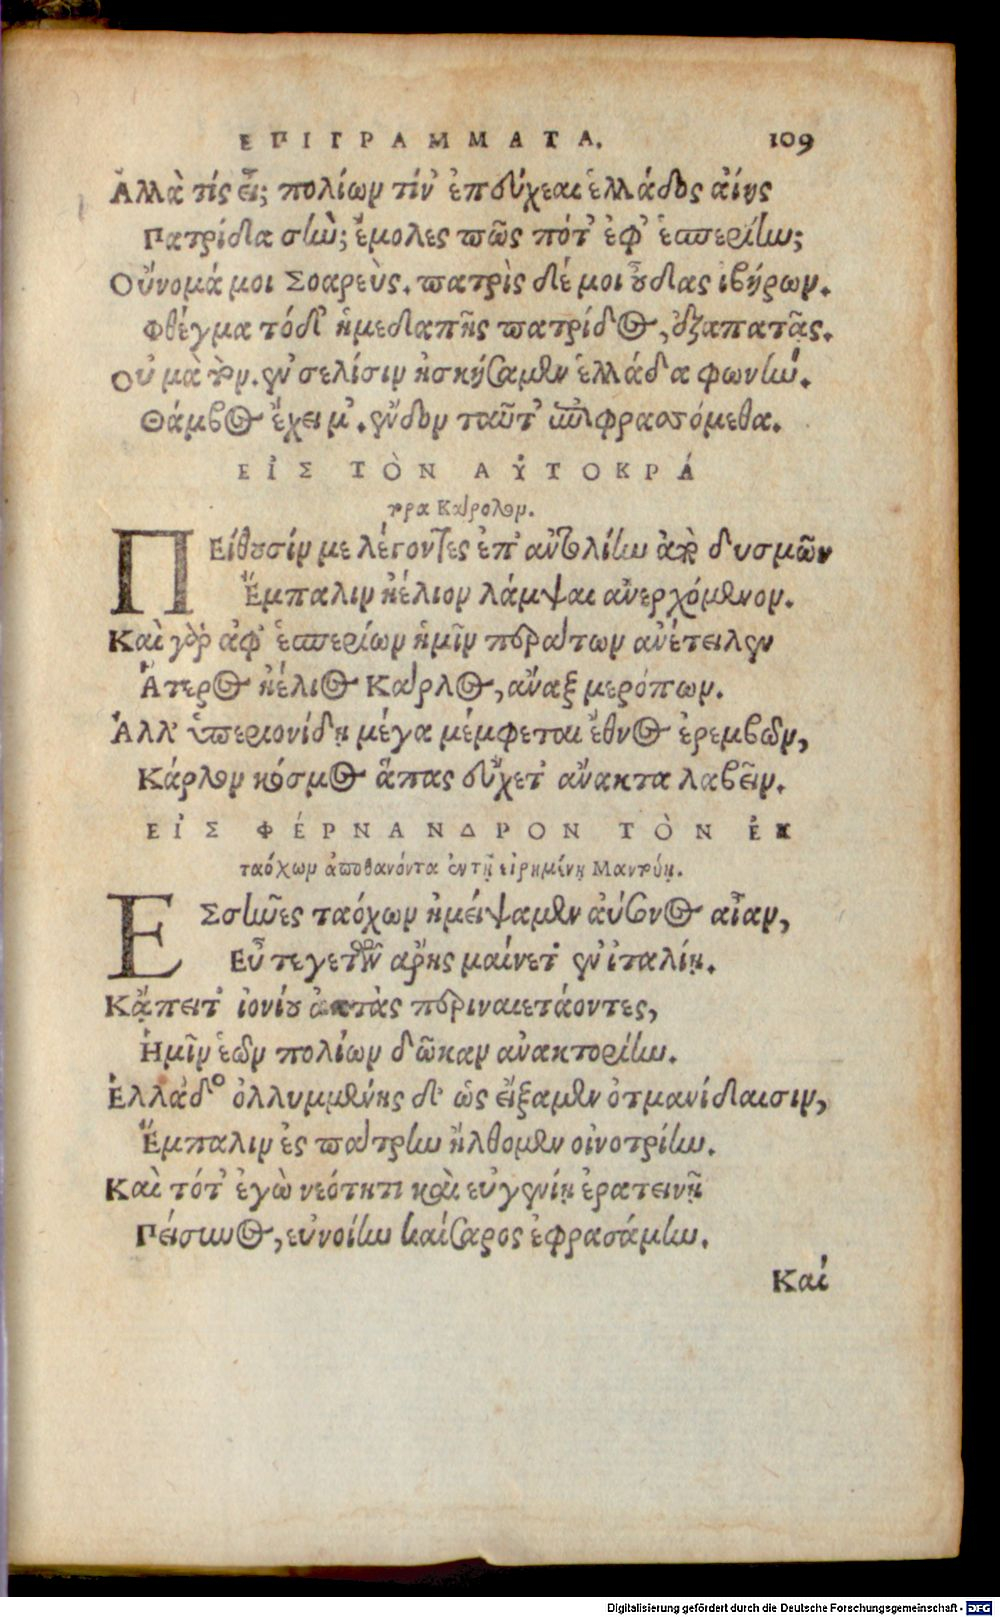 ΕΠΙΓΡΑΜΜΑΤΑ. 109
Ἀλλὰ τίς εἶ; πολίων τίν' ἐπεύχεαι ἑλλάδος αἴης
Πατρίδα σὴν; ἔμολες πῶς πότ' ἐφ' ἑσπερίην;
Οὔνομά μοι Σοαρεὺς. πατρὶς δέ μοι οὖδας ἰβήρων.
Φθέγμα τόδ' ἡμεδαπῆς πατρίδος, ἐξαπατᾷς.
Οὐ μὰ τὸν. ἐν σελίσιν ἠσκήσαμεν ἑλλάδα φωνήν.
Θάμβος ἔχει μ'. ἔνδον ταῦτ' ἐπιφρασόμεθα.
ΕἰΣ ΤὸΝ ΑὐΤΟΚΡΆ
τορα Κάρολον.
ΠΕίθουσίν με λέγοντες ἐπ' ἀντολίην ἀπὸ δυσμῶν
Ἔμπαλιν ἠέλιον λάμψαι ἀνερχόμενον.
Καὶ γὰρ ἀφ' ἑσπερίων ἡμῖν περάτων ἀνέτειλεν
Ἄτερος ἠέλιος Κάρλος, ἄναξ μερόπων.
Ἀλλ' ὑπεριονίδῃ μέγα μέμφεται ἔθνος ἐρεμβῶν,
Κάρλον κόσμος ἅπας εὔχετ' ἄνακτα λαβεῖν.
ΕἰΣ ΦέΡΝΑΝΔΡΟΝ ΤὸΝ ἐΚ
ταόχων ἀποθανόντα ἐν τῇ εἰρημένῃ Μαντύῃ.
ΕΣσῆνες ταόχων ἠμείψαμεν αὔσονος αἶαν,
Εὖτε γετῶν ἄρης μαίνετ' ἐν ἰταλίῃ.
Κἄπειτ' ἰονίου ἀκτὰς περιναιετάοντες,
Ἡμῖν ἑῶν πολίων δῶκαν ἀνακτορίην.
Ἑλλάδος ὀλλυμμένης δ' ὡς εἴξαμεν ὀτμανίδαισιν,
Ἔμπαλιν ἐς πάτρην ἤλθομεν οἰνοτρίην.
Καὶ τότ' ἐγὼ νεότητι καὶ εὐγενίῃ ἐρατεινῇ
Πείσυνος, εὐνοίην καίσαρος ἐφρασάμην.
Καὶ
Digitalisierung gefördert durch die Deutsche Forschungsgemeinschaft - DFG